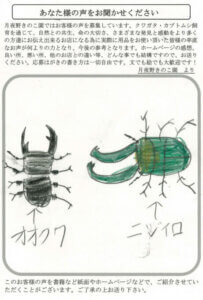 あなた様の声をお聞かせください
月夜野きのこ園ではお客様の声を募集しています。クワガタ・カブトムシ飼
育を通じて、自然との共生、命の大切さ、さまざまな発見と感動をより多く
の方達にお伝え出来るお店になる為に実際に用品をお使い頂いた皆様の率直
なお声が何よりの力となり、今後の参考となります。ホームページの感想、
良い所、悪い所、他のお店との違い等、どんな事でも結構ですので、お送り
ください。応募はがきの書き方は一切自由です。文でも絵でも大歓迎です！
月夜野きのこ園 より
オオクワ
ニジイロ
このお客様の声を書籍など紙面やホームページなどで、ご紹介させていた
だくことがございます。ご了承の上お送り下さい。